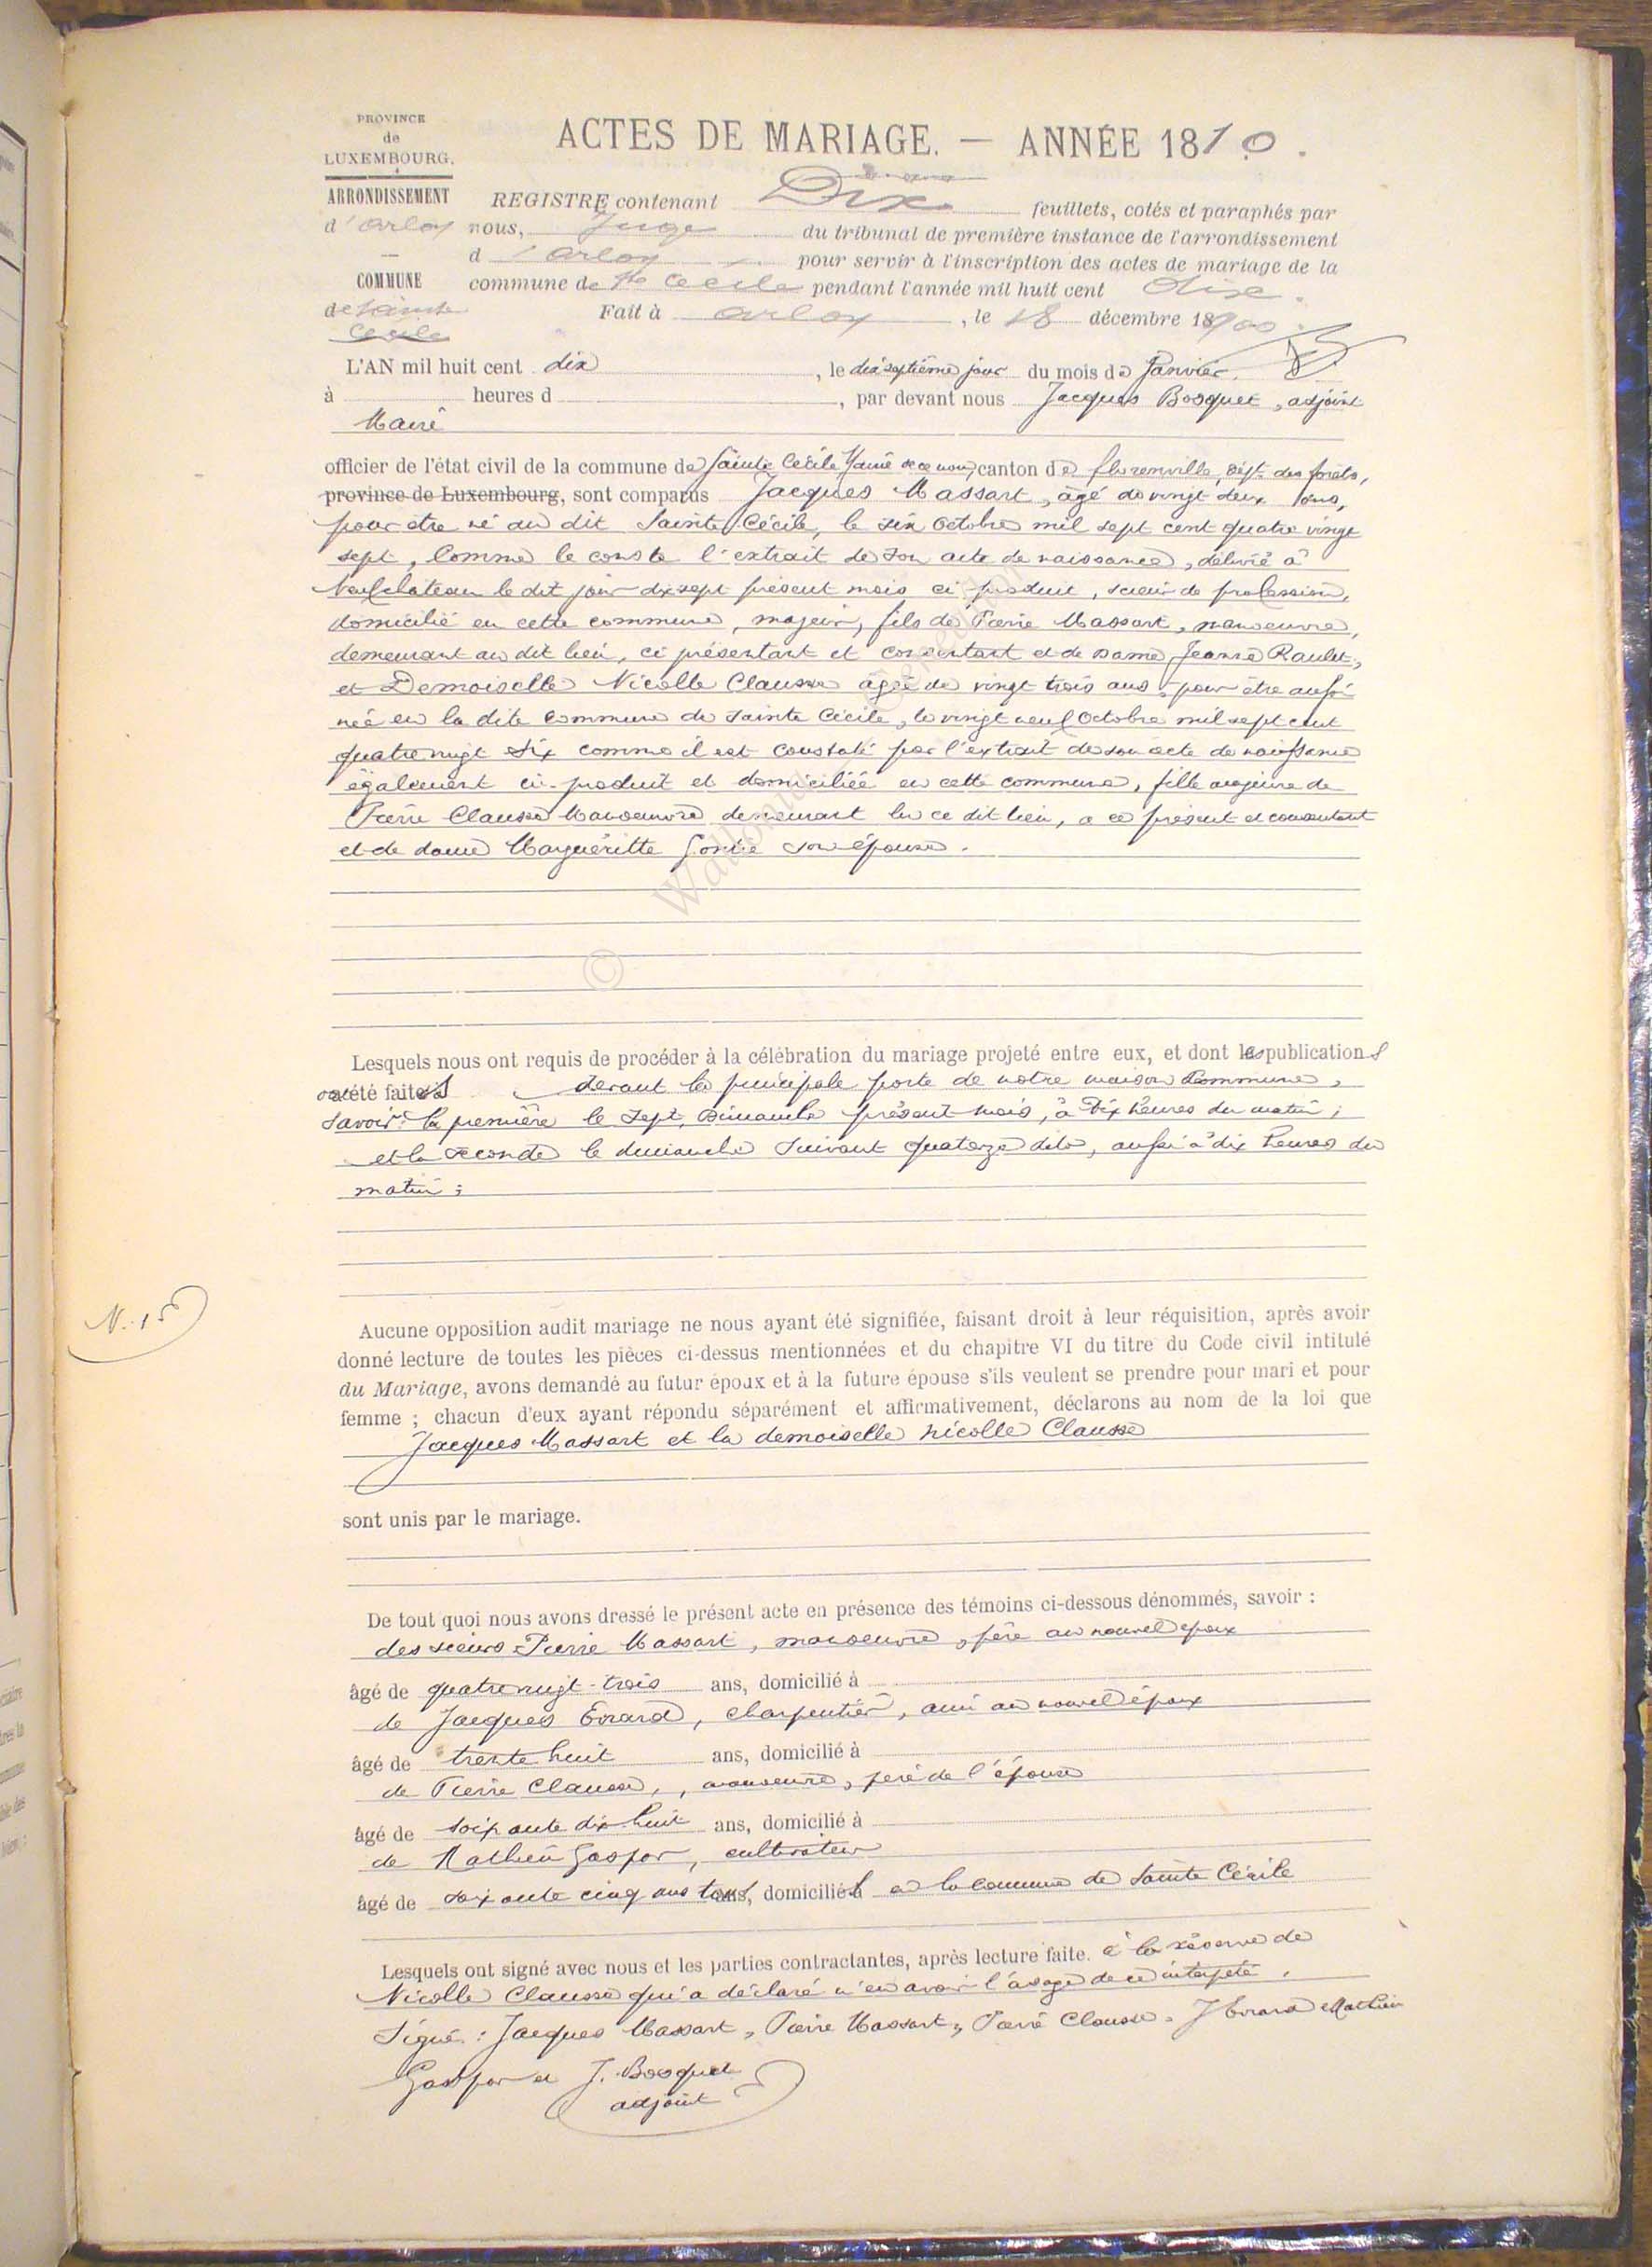 PROVINCE
de
LUXEMBOURG.
ARRONDISSEMENT
d'Arlon
COMMUNE
de Sainte
Cécile
ACTES DE MARIAGE. — ANNÉE 1810.
REGISTRE contenant Dix feuillets, cotés et paraphés par
nous, Juge du tribunal de première instance de l'arrondissement
d'Arlon pour servir à l'inscription des actes de mariage de la
commune de Ste Cécile pendant l'année mil huit cent dix.
Fait à Arlon, le 18 décembre 1900
L'AN mil huit cent dix, le dix septième jour du mois de Janvier.
à heures d , par devant nous Jacques Bosquet, adjoint
Maire
officier de l'état civil de la commune de Sainte Cécile Mairie de ce nom, canton de florenville, dépt. des forêts,
province de Luxembourg, sont comparus Jacques Massart, âgé de vingt deux ans,
pour être né au dit Sainte Cécile, le six Octobre mil sept cent quatre vingt
sept, comme le conste l'extrait de son acte de naissance, délivré à
Neufchateau le dit jour dix sept présent mois ci produit, scieur de profession,
domicilié en cette commune, majeur, fils de Pierre Massart, manoeuvre,
demeurant au dit lieu, ci présentant et consentant et de Dame Jeanne Raulet,
et Demoiselle Nicolle Clausse âgée de vingt trois ans, pour être aussi
née en la dite commune de Sainte Cécile, le vingt neuf Octobre mil sept cent
quatre vingt six comme il est constaté par l'extrait de son acte de naissance
également ci-produit et domiciliée en cette commune, fille majeure de
Pierre Clausse Manoeuvre demeurant en ce dit lieu, à ce présent et consentant
et de dame Marguéritte son épouse.
© Wallonia
Lesquels nous ont requis de procéder à la célébration du mariage projeté entre eux, et dont les publications
ont été faites devant la principale porte de notre maison Commune,
savoir: la première le sept, Dimanche présent mois, à Dix heures du matin;
et la seconde le dimanche suivant quatorze dito, aussi à dix heures du
matin;
N. 1
Aucune opposition audit mariage ne nous ayant été signifiée, faisant droit à leur réquisition, après avoir
donné lecture de toutes les pièces ci-dessus mentionnées et du chapitre VI du titre du Code civil intitulé
du Mariage, avons demandé au futur époux et à la future épouse s'ils veulent se prendre pour mari et pour
femme ; chacun d'eux ayant répondu séparément et affirmativement, déclarons au nom de la loi que
Jacques Massart et la demoiselle Nicolle Clausse
sont unis par le mariage.
De tout quoi nous avons dressé le présent acte en présence des témoins ci-dessous dénommés, savoir :
des sieurs Pierre Massart, manoeuvre, père au nouvel époux
âgé de quatre vingt-trois ans, domicilié à
de Jacques Evrard, charpentier, ami au nouvel époux
âgé de trente huit ans, domicilié à
de Pierre Clausse, manoeuvre, père de l'épouse
âgé de soixante dix huit ans, domicilié à
de Mathieu Gaspar, cultivateur
âgé de soixante cinq ans tous, domiciliés en la commune de Sainte Cécile
Lesquels ont signé avec nous et les parties contractantes, après lecture faite. à la réserve de
Nicolle Clausse qui a déclaré n'en avoir l'usage de ce interpelé.
Signé : Jacques Massart, Pierre Massart, Pierre Clausse. J Evrard Mathieu
Gaspar et J. Bosquet
adjoint